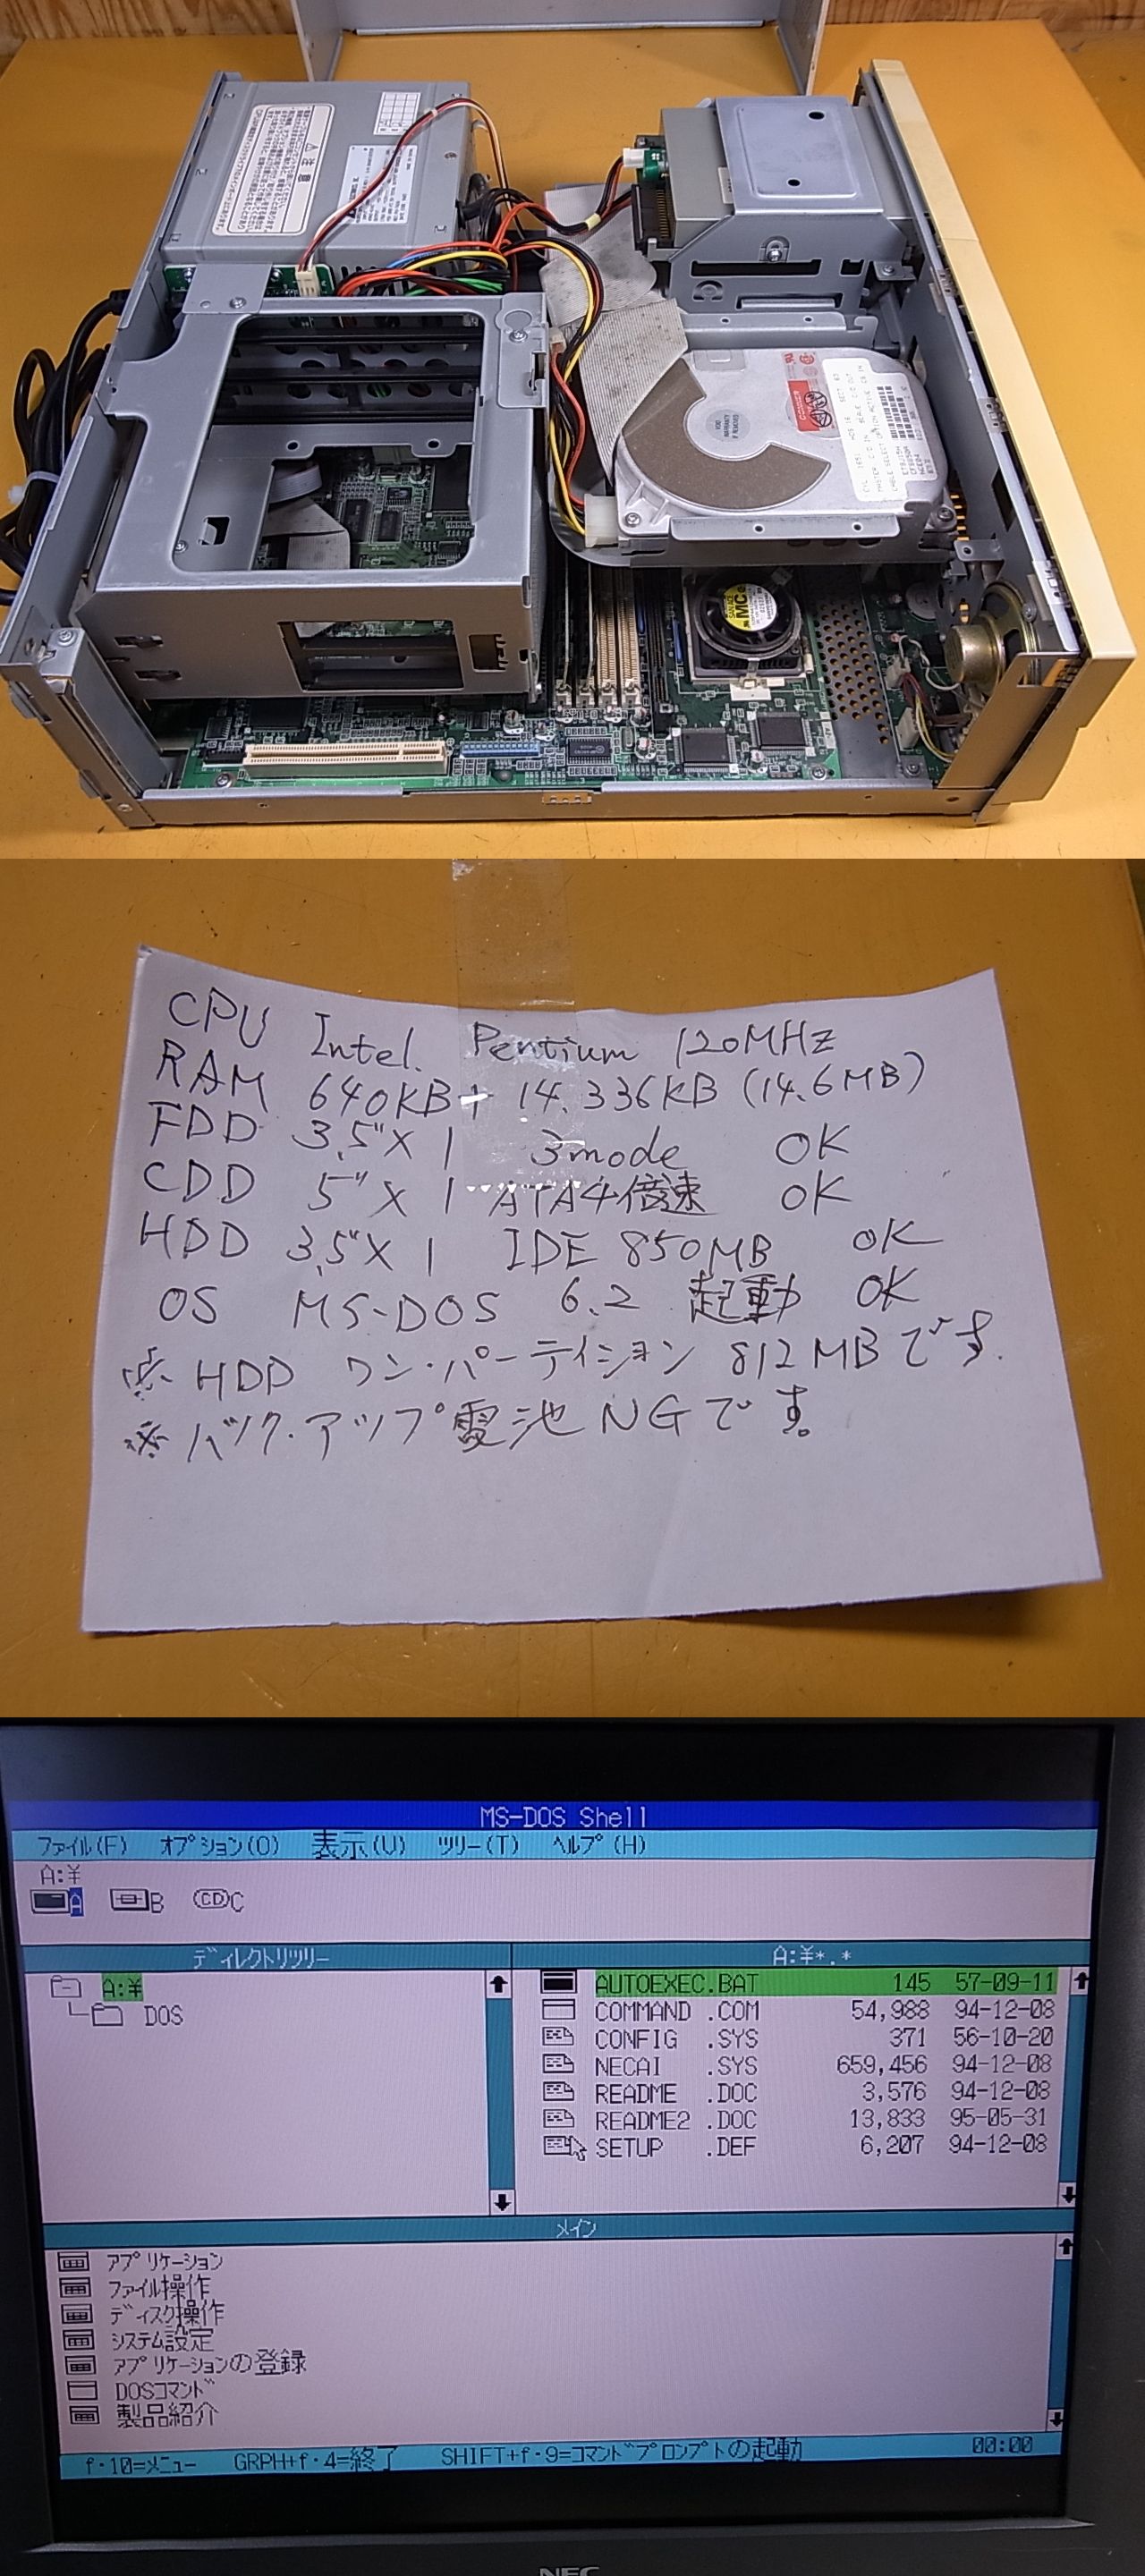 注意
CYL 1651 HDS 16 SECT 63
VOID WARRANTY IF REMOVED
SANYO
MC
CPU Intel. Pentium 120MHz
RAM 640KB+ 14.336KB (14.6MB)
FDD 3.5"X 1 3mode OK
CDD 5"X 1 ATA4倍速 OK
HDD 3.5"X 1 IDE 850MB OK
OS MS-DOS 6.2 起動 OK
※ HDD ワン・パーテイション 812MBです.
※ バック.アップ電池 NGです。
MS-DOS Shell
ファイル(F) オプション(O) 表示(V) ツリー(T) ヘルプ(H)
A:¥
A B CD C
ディレクトリツリー A:¥*.*
A:¥
DOS
AUTOEXEC.BAT 145 57-09-11
COMMAND .COM 54,988 94-12-08
CONFIG .SYS 371 56-10-20
NECAI .SYS 659,456 94-12-08
README .DOC 3,576 94-12-08
README2 .DOC 13,833 95-05-31
SETUP .DEF 6,207 94-12-08
メイン
アプリケーション
ファイル操作
ディスク操作
システム設定
アプリケーションの登録
DOSコマンド
製品紹介
f・10=メニュー GRPH+f・4=終了 SHIFT+f・9=コマンドプロンプトの起動 00:00
NEC